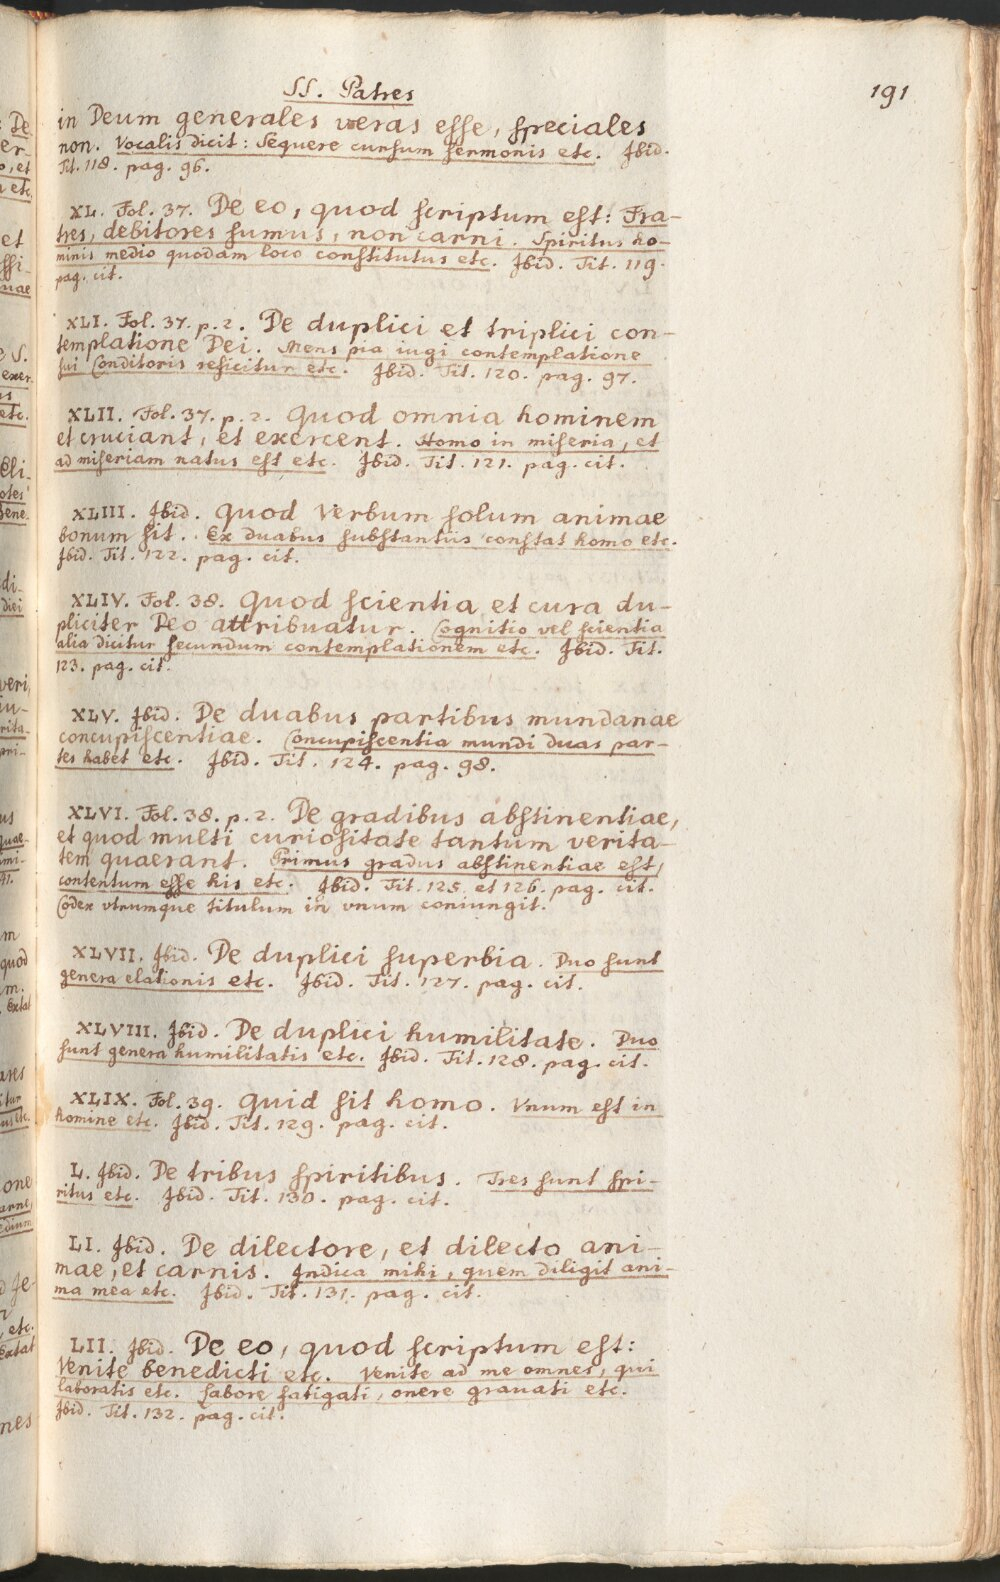 SS. Patres
191
in Deum generales veras esse, speciales
non. Vocalis dicit: Sequere cursum sermonis etc. Ibid.
Tit. 118. pag. 96.
XL. Fol. 37. De eo, quod scriptum est: Fra-
tres, debitores sumus, non carni. Spiritus ho-
minis medio quodam loco constitutus etc. Ibid. Tit. 119.
pag. cit.
XLI. Fol. 37. p. 2. De duplici et triplici con-
templatione Dei. Mens pia iugi contemplatione
sui Conditoris reficitur etc. Ibid. Tit. 120. pag. 97.
XLII. Fol. 37. p. 2. Quod omnia hominem
et cruciant, et exercent. Homo in miseria, et
ad miseriam natus est etc. Ibid. Tit. 121. pag. cit.
XLIII. Ibid. Quod Verbum solum animae
bonum sit. Ex duabus substantiis constat homo etc.
Ibid. Tit. 122. pag. cit.
XLIV. Fol. 38. Quod scientia et cura du-
pliciter Deo attribuatur. Cognitio vel scientia
alia dicitur secundum contemplationem etc. Ibid. Tit.
123. pag. cit.
XLV. Ibid. De duabus partibus mundanae
concupiscentiae. Concupiscentia mundi duas par-
tes habet etc. Ibid. Tit. 124. pag. 98.
XLVI. Fol. 38. p. 2. De gradibus abstinentiae,
et quod multi curiositate tantum verita-
tem quaerant. Primus gradus abstinentiae est,
contentum esse his etc. Ibid. Tit. 125. et 126. pag. cit.
Codex vtrumque titulum in vnum coniungit.
XLVII. Ibid. De duplici superbia. Duo sunt
genera elationis etc. Ibid. Tit. 127. pag. cit.
XLVIII. Ibid. De duplici humilitate. Duo
sunt genera humilitatis etc. Ibid. Tit. 128. pag. cit.
XLIX. Fol. 39. Quid sit homo. Vnum est in
homine etc. Ibid. Tit. 129. pag. cit.
L. Ibid. De tribus spiritibus. Tres sunt spi-
ritus etc. Ibid. Tit. 130. pag. cit.
LI. Ibid. De dilectore, et dilecto ani-
mae, et carnis. Indica mihi, quem diligit ani-
ma mea etc. Ibid. Tit. 131. pag. cit.
LII. Ibid. De eo, quod scriptum est:
Venite benedicti etc. Venite ad me omnes, qui
laboratis etc. Labore fatigati, onere grauati etc.
Ibid. Tit. 132. pag. cit.